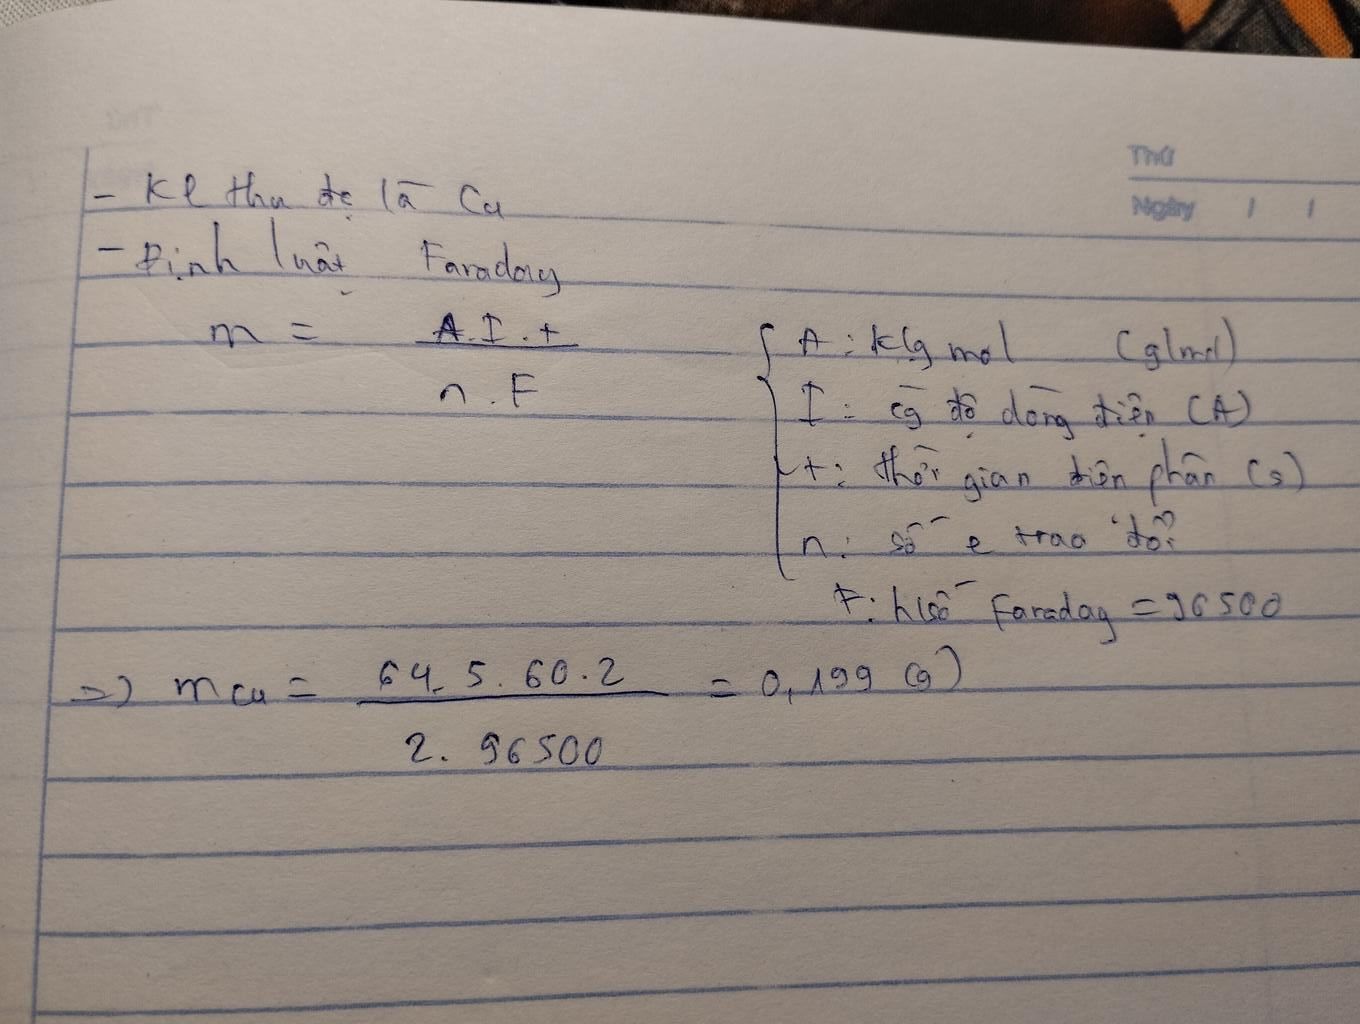 Thứ
Ngày / /
- Kl thu đc là Cu
- Định luật Faraday
m = A.I.t / n.F
A: klg mol (g/mol)
I: cg độ dòng điện (A)
t: thời gian điện phân (s)
n: số e trao đổi
F: h/số Faraday = 96500
=> mCu = 64.5.60.2 / 2.96500 = 0,199 (g)